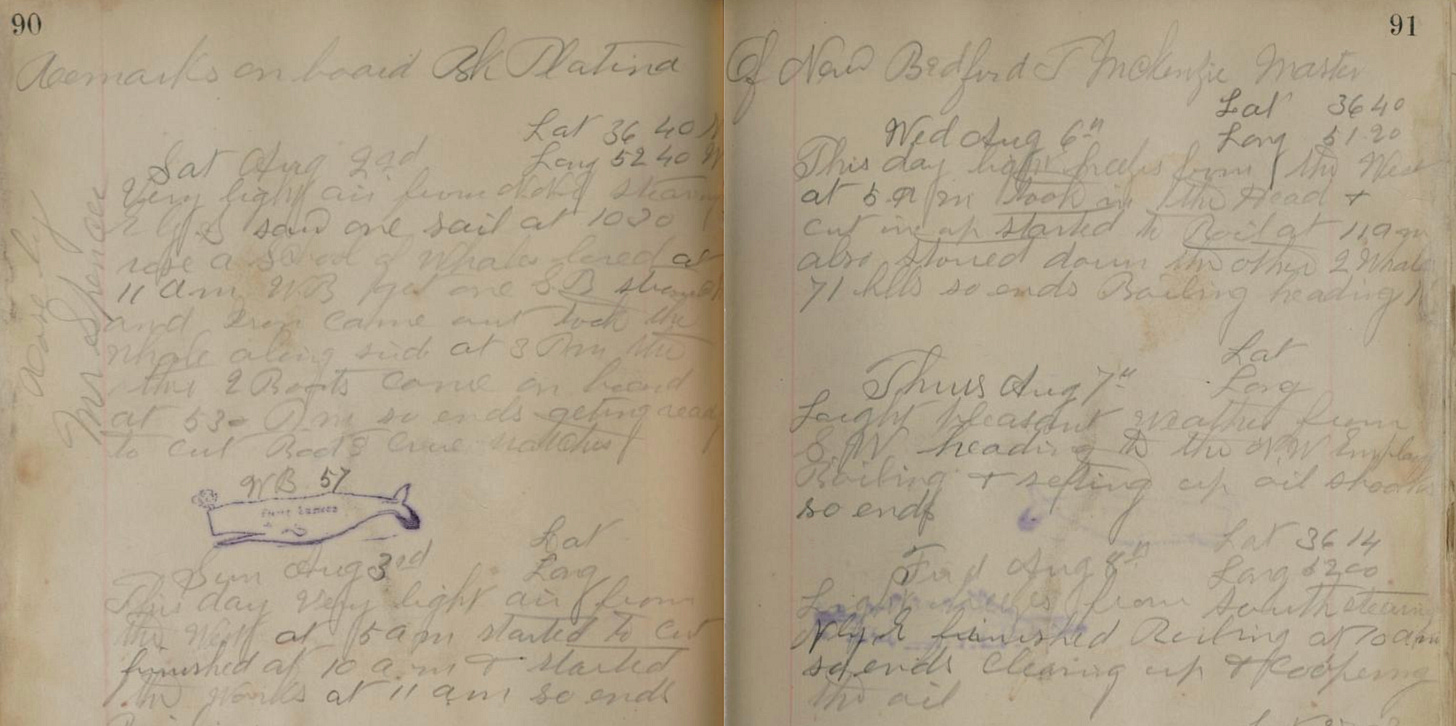 90
Remarks on board Bk Platina
Lat 36 40 N
Sat Aug 2nd Long 52 40 W
Very light air from steering
saw one sail at 1030
rose a School of Whales lored at
11 am WB got one SB struck
and Iron came out took the
Whale along sid at 3 Pm the
the 2 Boats came on board
at 530 P m so ends geting ready
to cut Boats Crue watches
Rose by
Mr Spencer
WB 57
Lat
Sun Aug 3rd Long
This day Very light air from
the West at 5 am started to cut
finnished at 10 a.m & started
the Works at 11 am so ends
91
Of New Bedford T McKenzie Master
Lat 36 40
Wed Aug 6th Long 51.20
This day light from the West
at 5 took in the Head &
cut in up started to Boil at 11 am
also stowed down the other 2 Whale
71 blls so ends Boiling heading
Lat
Thurs Aug 7th Long
Laight pleasant weather from
S.W heading to the NW Employ
Boiling & setting up oil shooks
so ends
Lat 36 14
Frid Aug 8th Long 52 00
from South steering
finnished Boiling at 10 am
so ends Clearing up & Coopering
the oil